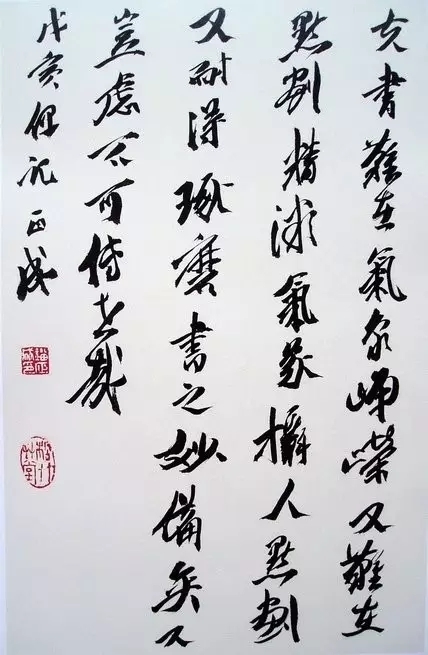 夫書難在氣象崢嶸又難在
點劃精微氣象攝人點劃
又耐得琢磨書之妙備矣又
豈慮不可傳世哉
戊寅 正成